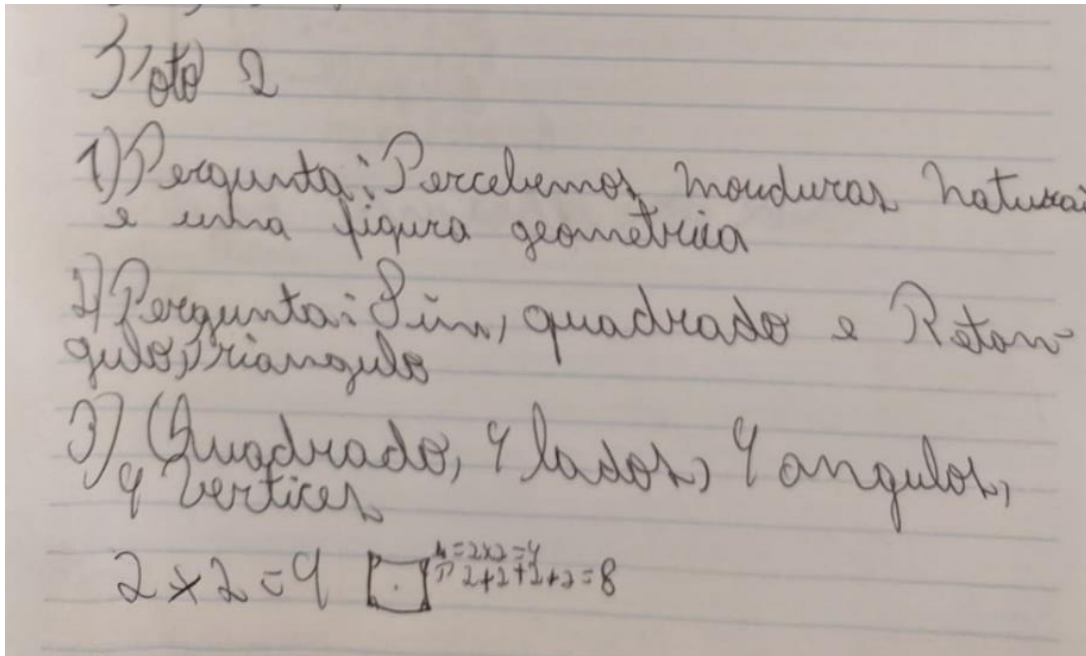 Foto 2
1) Pergunta: Percebemos mouduras naturai
e uma figura geometrica
2) Pergunta: Sim, quadrado e Retan
gulo, triangulo
3) Quadrado, 4 lados, 4 angulos,
4 vertices
2 x 2 = 4 A = 2x2 = 4
P 2+2+2+2 = 8